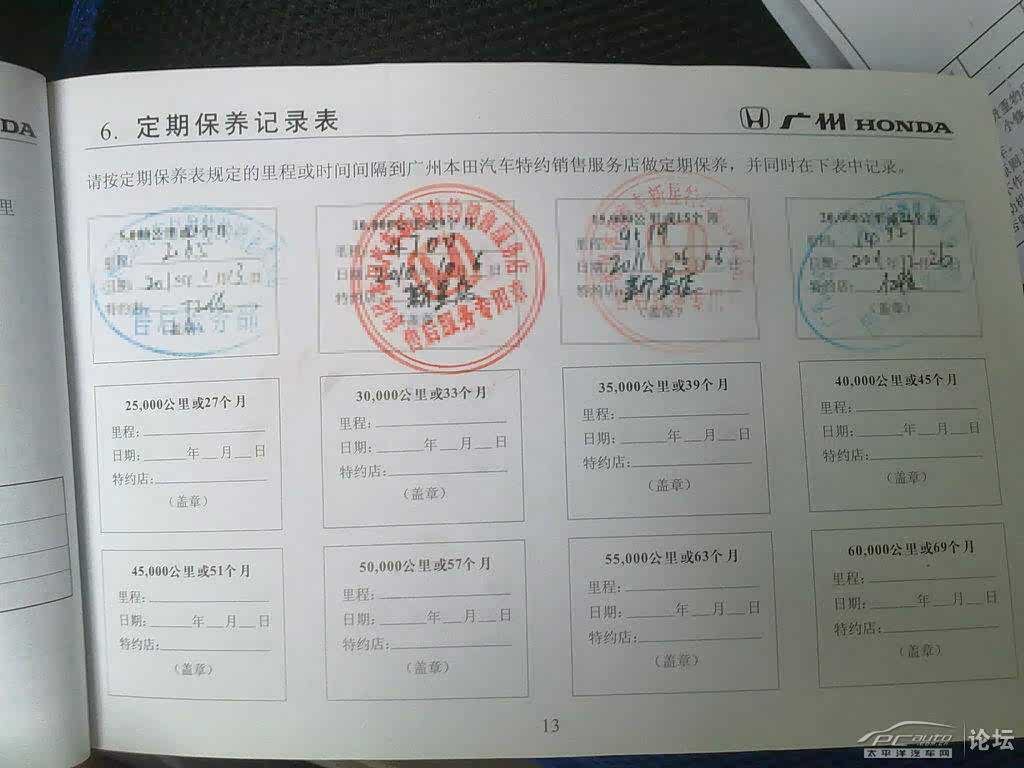 DA
里
6. 定期保养记录表
广州 HONDA
请按定期保养表规定的里程或时间间隔到广州本田汽车特约销售服务店做定期保养，并同时在下表中记录。
5,000公里或3个月
里程:
日期:
特约店:
售后服务部
10,000公里或9个月
4704
日期:
特约店:
(盖章)
售后服务专用章
15,000公里或15个月
里程:
日期: 2011
特约店:
(盖章)
20,000公里或21个月
里程:
日期:
特约店:
(盖章)
25,000公里或27个月
里程:
日期: 年 月 日
特约店:
(盖章)
30,000公里或33个月
里程:
日期: 年 月 日
特约店:
(盖章)
35,000公里或39个月
里程:
日期: 年 月 日
特约店:
(盖章)
40,000公里或45个月
里程:
日期: 年 月 日
特约店:
(盖章)
45,000公里或51个月
里程:
日期: 年 月 日
特约店:
(盖章)
50,000公里或57个月
里程:
日期: 年 月 日
特约店:
(盖章)
55,000公里或63个月
里程:
日期: 年 月 日
特约店:
(盖章)
60,000公里或69个月
里程:
日期: 年 月 日
特约店:
(盖章)
13
PCauto
太平洋汽车网
论坛